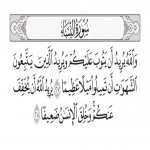 سُورَةُ النِّسَاءِ
وَٱللَّهُ يُرِيدُ أَن يَتُوبَ عَلَيْكُمْ وَيُرِيدُ ٱلَّذِينَ يَتَّبِعُونَ
ٱلشَّهَوَٰتِ أَن تَمِيلُوا۟ مَيْلًا عَظِيمًا ۝٢٧ يُرِيدُ ٱللَّهُ أَن يُخَفِّفَ
عَنكُمْ ۚ وَخُلِقَ ٱلْإِنسَٰنُ ضَعِيفًا ۝٢٨